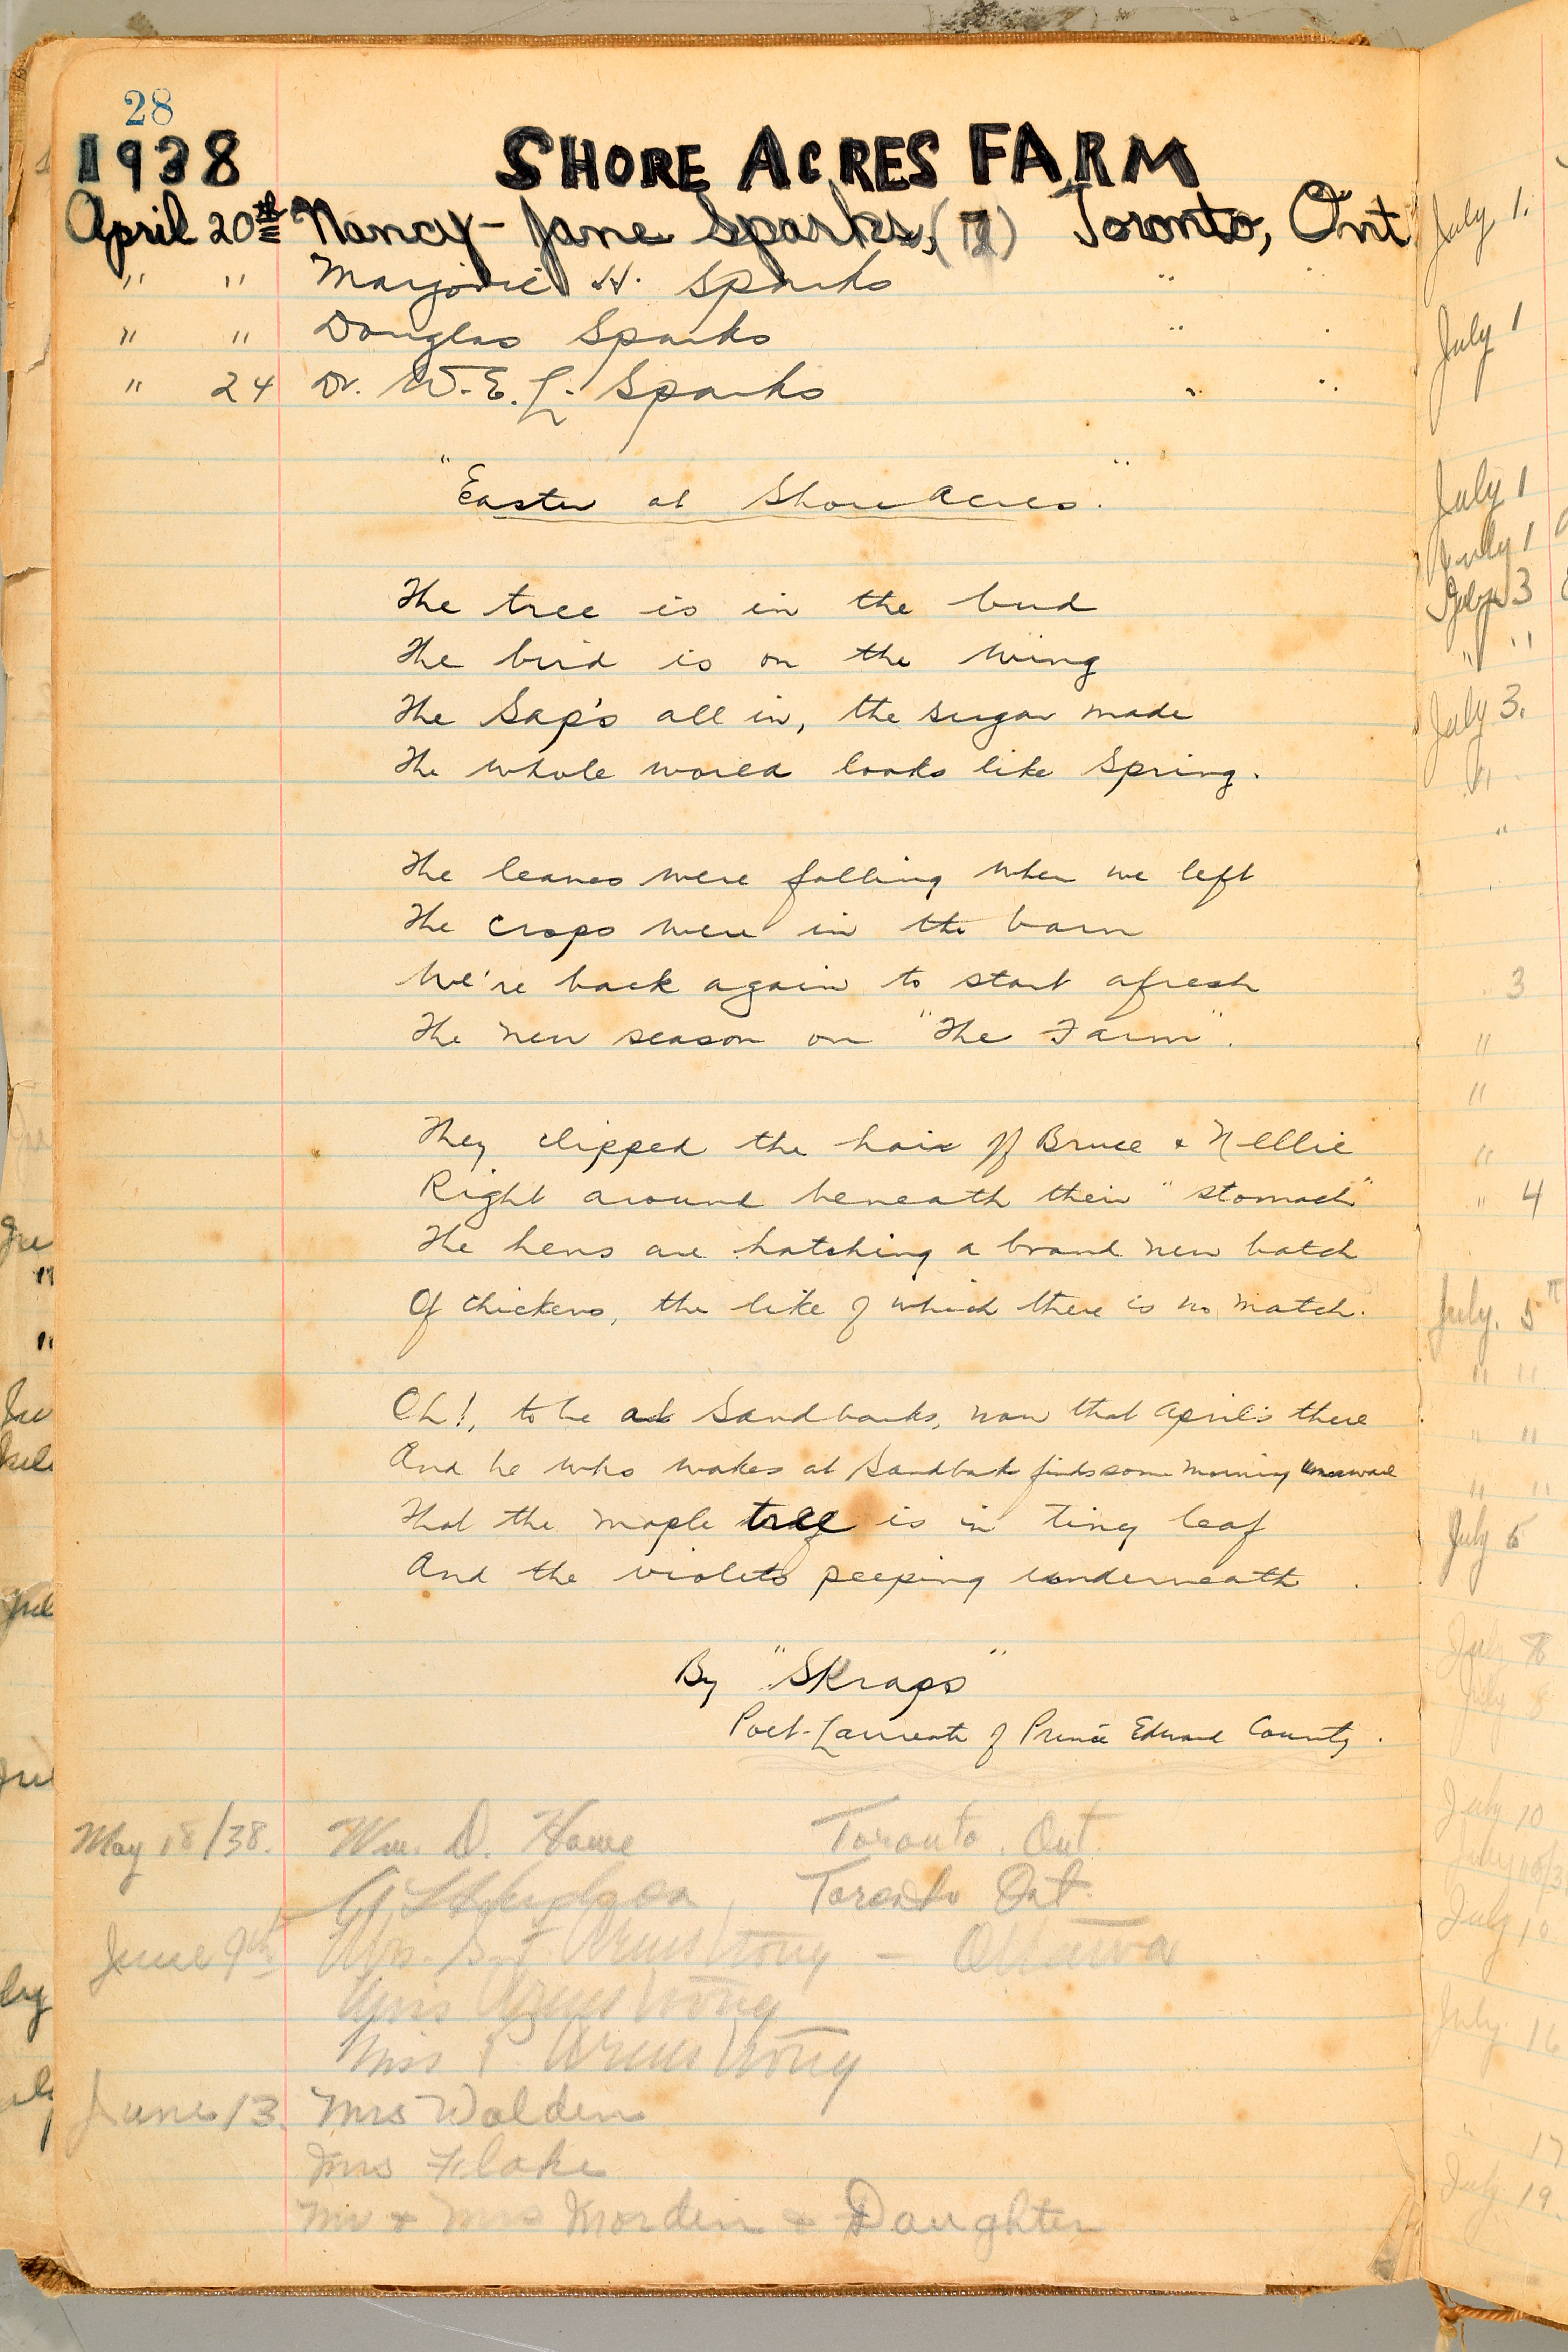 28
1938 SHORE ACRES FARM
April 20th Nancy-Jane Sparks, Toronto, Ont.
" " Marjorie H. Sparks " "
" " Douglas Sparks " "
" 24 Dr. W.E.L. Sparks " "
"Easter at Shore Acres."
The tree is in the bud
The bird is on the wing
The Sap's all in, the sugar made
The whole world looks like Spring.
The leaves were falling when we left
The crops were in the barn
We're back again to start afresh
The new season on "The Farm".
They clipped the hair off Bruce & Nellie
Right around beneath their "stomach"
The hens are hatching a brand new batch
Of chickens, the like of which there is no match.
Oh!, to be at Sandbanks, now that April's there
And he who wakes at Sandbank finds some morning unaware
That the maple tree is in tiny leaf
And the violets peeping underneath.
By "Skraps"
Poet-Laureate of Prince Edward County.
May 18/38. Wm. D. Howe Toronto. Ont.
Toronto Ont.
June 9th Mrs. Armstrong - Ottawa
Miss Armstrong
Miss P. Armstrong
June 13. Mrs Walden
Mrs Flake
Mr & Mrs Morden & Daughter
July 1.
July 1
July 1
July 1
July 3
" "
July 3.
"
"
3
"
"
"
" 4
July. 5th
" "
" "
" "
July 5
July 8
July 8
July 10
July 10
July 16
" 17
July 19.